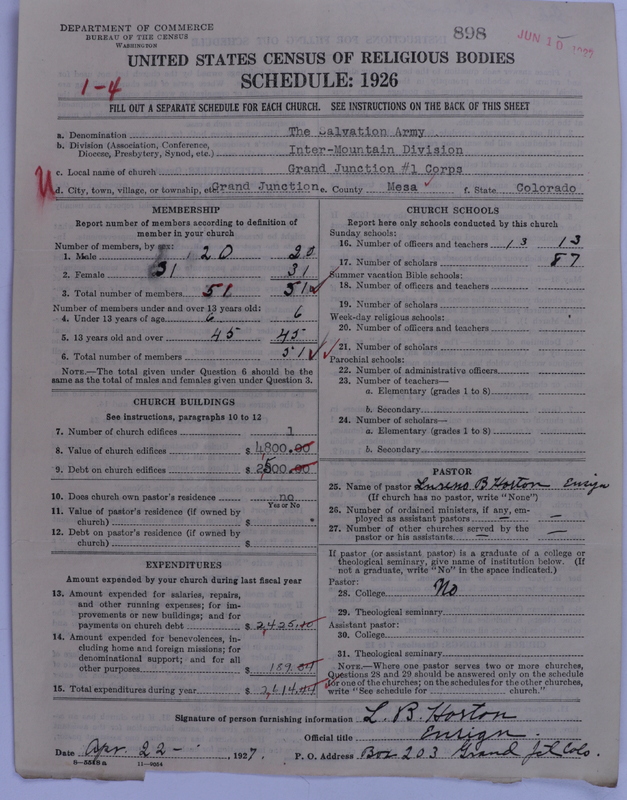 DEPARTMENT OF COMMERCE
BUREAU OF THE CENSUS
WASHINGTON
898
JUN 15
UNITED STATES CENSUS OF RELIGIOUS BODIES
SCHEDULE: 1926
1-4
FILL OUT A SEPARATE SCHEDULE FOR EACH CHURCH. SEE INSTRUCTIONS ON THE BACK OF THIS SHEET
a. Denomination The Salvation Army
b. Division (Association, Conference, Diocese, Presbytery, Synod, etc.) Inter-Mountain Division
c. Local name of church Grand Junction #1 Corps
d. City, town, village, or township, etc. Grand Junction e. County Mesa f. State Colorado
MEMBERSHIP
Report number of members according to definition of
member in your church
Number of members, by sex:
1. Male 20 20
2. Female 31 31
3. Total number of members 51 51
Number of members under and over 13 years old:
4. Under 13 years of age 6 6
5. 13 years old and over 45 45
6. Total number of members 51
NOTE.—The total given under Question 6 should be
same as the total of males and females given under Question 3.
CHURCH BUILDINGS
See instructions, paragraphs 10 to 12
7. Number of church edifices 1
8. Value of church edifices $ 4800.00
9. Debt on church edifices $ 2500.00
10. Does church own pastor's residence no
Yes or No
11. Value of pastor's residence (if owned by
church) $
12. Debt on pastor's residence (if owned by
church) $
EXPENDITURES
Amount expended by your church during last fiscal year
13. Amount expended for salaries, repairs,
and other running expenses; for im-
provements or new buildings; and for
payments on church debt $ 2,425.40
14. Amount expended for benevolences, in-
cluding home and foreign missions; for
denominational support; and for all
other purposes $ 189.04
15. Total expenditures during year $ 2,614.44
CHURCH SCHOOLS
Report here only schools conducted by this church
Sunday schools:
16. Number of officers and teachers 13 13
17. Number of scholars 87
Summer vacation Bible schools:
18. Number of officers and teachers
19. Number of scholars
Week-day religious schools:
20. Number of officers and teachers
21. Number of scholars
Parochial schools:
22. Number of administrative officers
23. Number of teachers—
a. Elementary (grades 1 to 8)
b. Secondary
24. Number of scholars—
a. Elementary (grades 1 to 8)
b. Secondary
PASTOR
25. Name of pastor B Horton Ensign
(If church has no pastor, write "None")
26. Number of ordained ministers, if any, em-
ployed as assistant pastors — —
27. Number of other churches served by the
pastor or his assistants — —
If pastor (or assistant pastor) is a graduate of a college or
theological seminary, give name of institution below. (If
not a graduate, write "No" in the space indicated.)
Pastor:
28. College No
29. Theological seminary
Assistant pastor:
30. College
31. Theological seminary
NOTE.—Where one pastor serves two or more churches,
Questions 28 and 29 should be answered only on the schedule
for one of the churches; on the schedules for the other churches,
write "See schedule for church."
Signature of person furnishing information L. B. Horton
Official title Ensign.
Date Apr. 22 — , 1927. P. O. Address Box 203 Grand Jct Colo.
8-5548a 11-9554